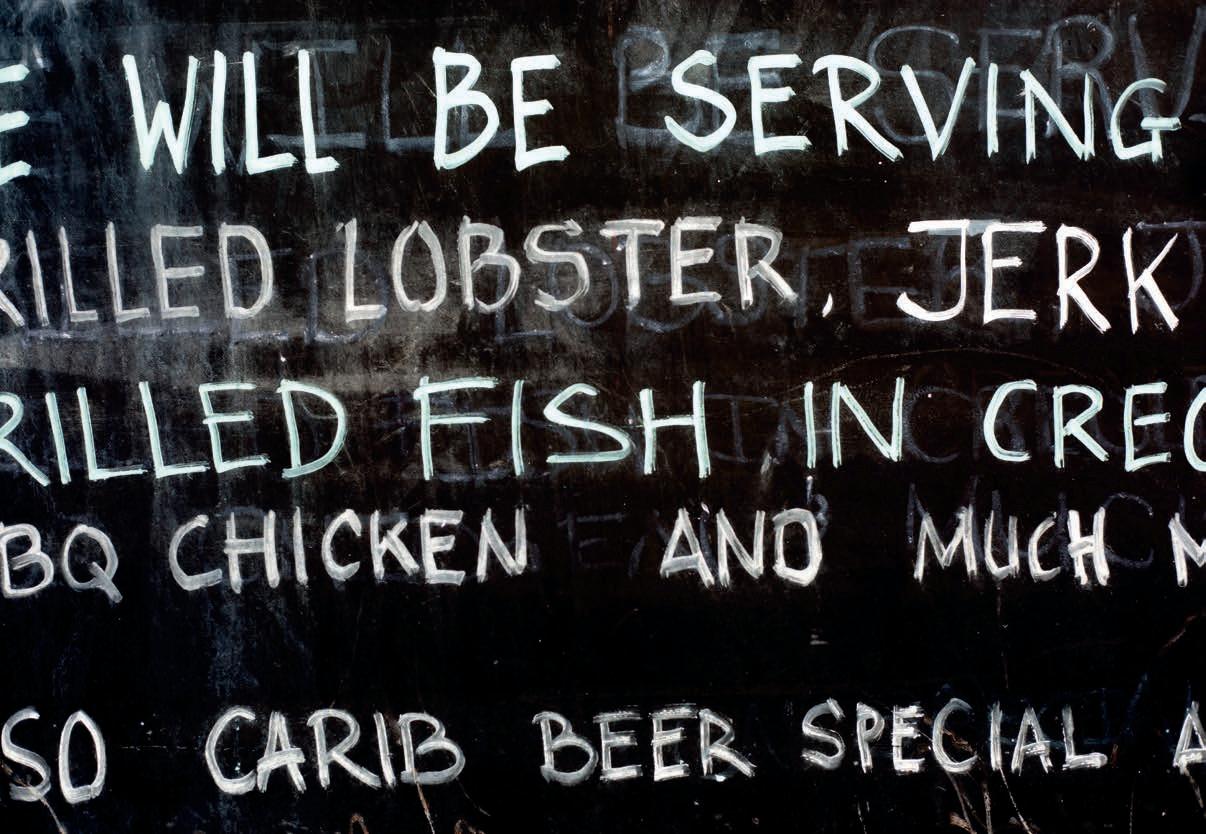 E WILL BE SERVING
RILLED LOBSTER, JERK
RILLED FISH IN CREO
BQ CHICKEN AND MUCH M
SO CARIB BEER SPECIAL A